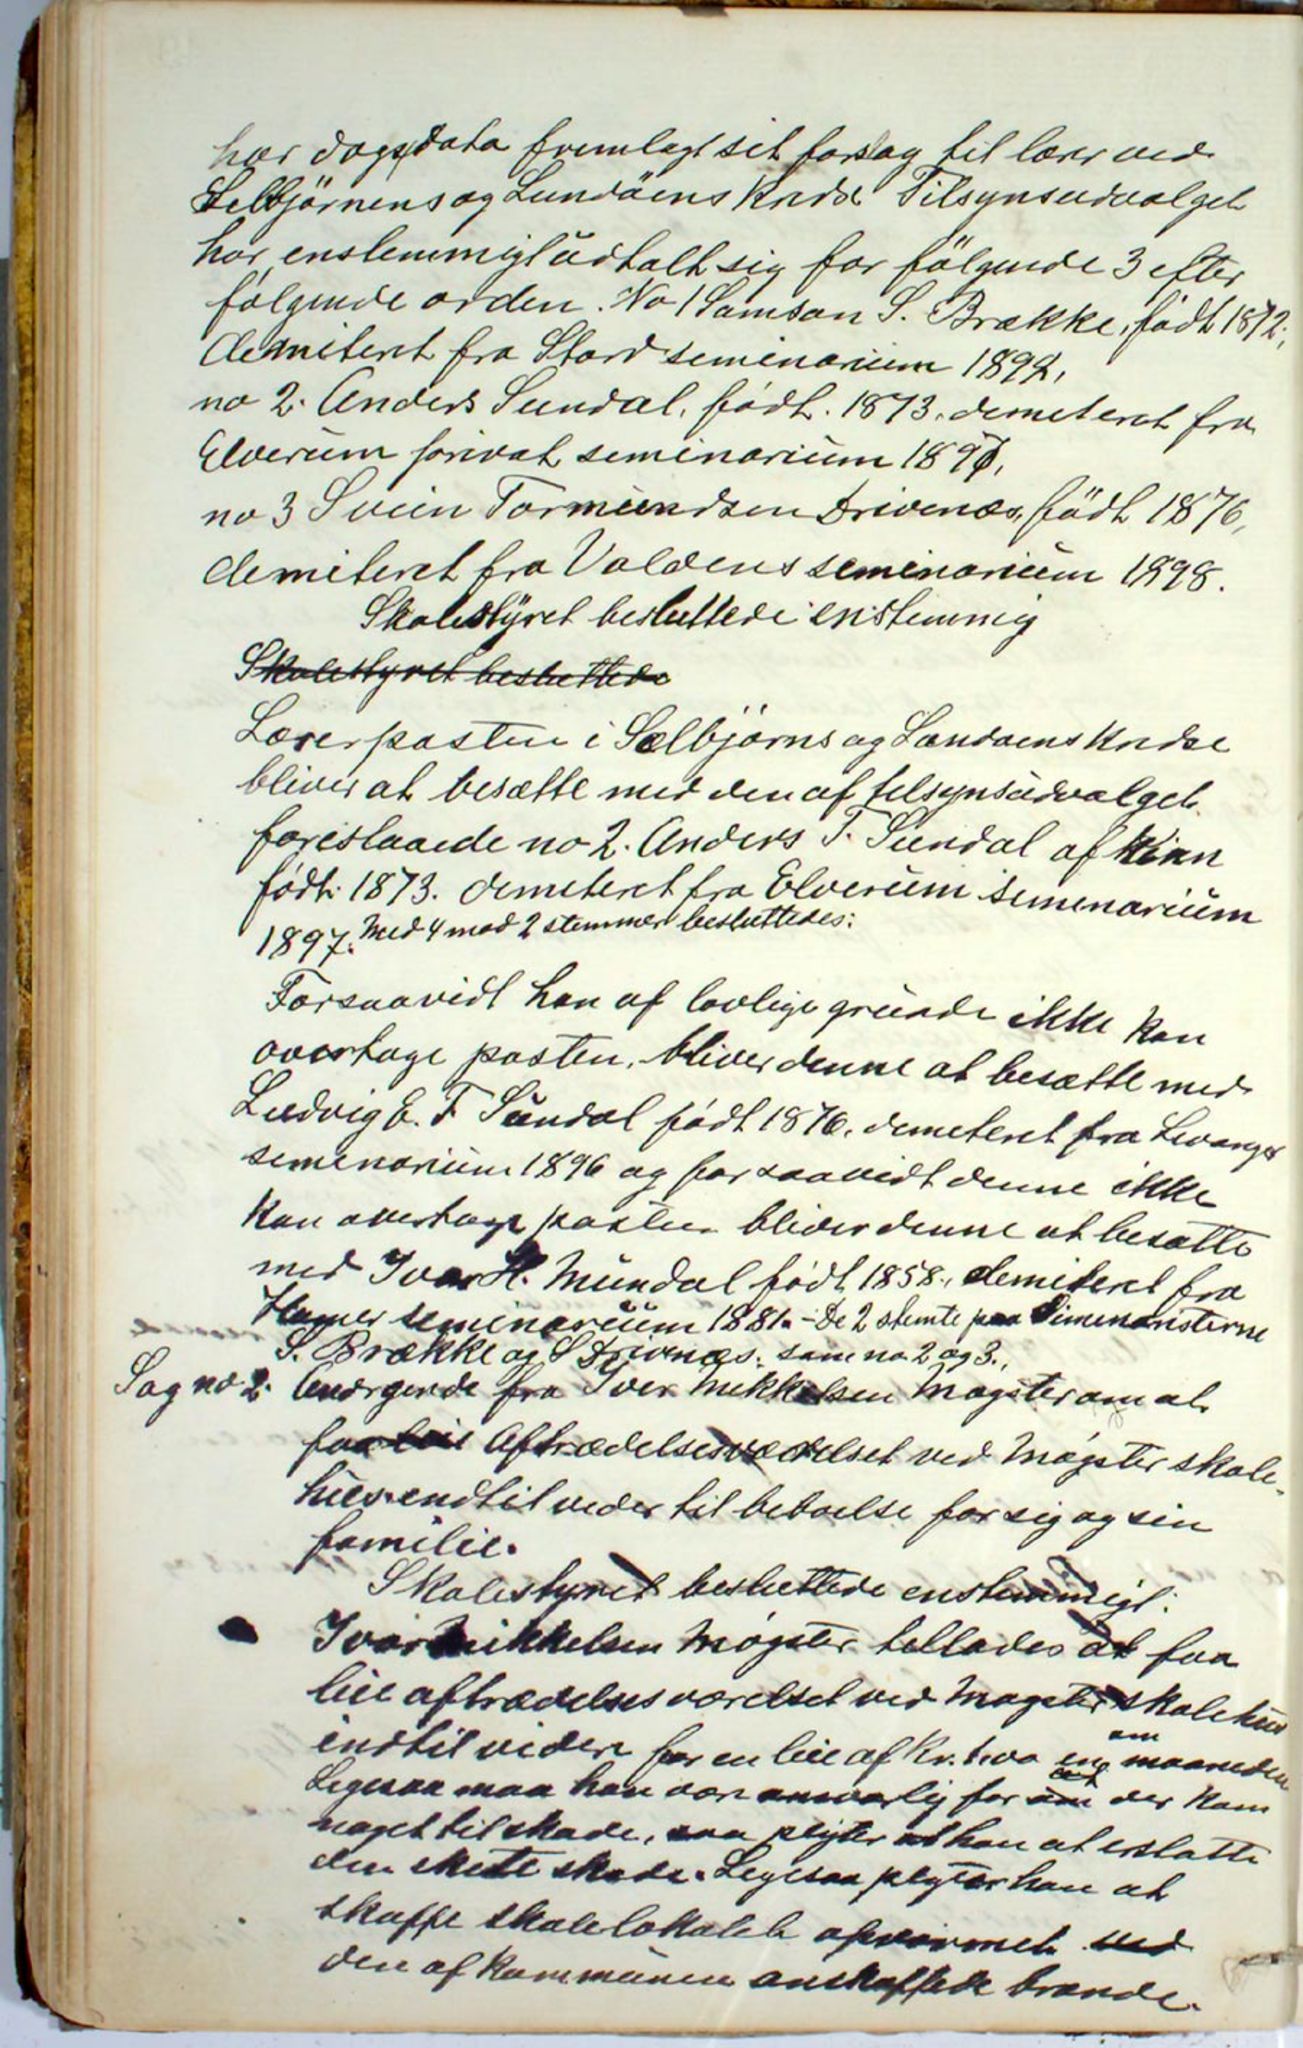 har dags data fremlagt sit forslag til lærer ved
Selbjörnens og Lundöens Krds Tilsynsudvalget
har enstemmigt udtalt sig for fölgende 3 efter
fölgende orden. No 1 Samson S. Brække, födt 1872,
demiteret fra Stord seminarium 1894,
no 2. Anders Sundal, födt. 1873. demeteret fra
Elverum privat seminarium 1897,
no 3 Svein Tormundsen Drivenæs, födt 1876,
demiteret fra Voldens seminarium 1898.
Skolestÿret besluttede enstemmig
Skolestyret besluttede
Lærerposten i Selbjörns og Landöens Krdse
bliver at besætte med den af tilsynsudvalget
foreslaaede no 2. Anders T. Sundal af Kinn
födt. 1873. demeteret fra Elverum semenarium
1897. Med 4 mod 2 stemmer besluttedes:
Forsaavidt han af lovlige grunde ikke kan
overtage posten, bliver denne at besætte med
Ludvig E. F Sundal födt 1876, demeteret fra Levanger
semenarium 1896 og forsaavidt denne ikke
kan overtage posten bliver denne at besætte
med Ivar H. Mundal födt 1858, demiteret fra
Hamar seminarium 1881. - De 2 stemte paa Simenaristerne
S. Brække og S Drivnæs. som no 2 og 3.
Sag no 2. Andrgende fra Iver Mikkelsen Møgster om at
faa leie Aftrædelsesværelset ved Møgster skole-
hus indtil veder til beboelse for sig og sin
familie.
Skolestyret besluttede enstemmigt:
Ivar Mikkelsen Møgster tellades at faa
leie aftrædelsesværelset ved Møgster skolehus
indtil videre for en leie af Kr. 1.00 om maaneden
Legesaa maa han vær answarlig for at der kom
noget til skade, saa pligter at han at erstatte
den skete skade. Legesaa plegter han at
skaffe skolelokalet opvarmet ved
den af kommunen anskaffede brænde.